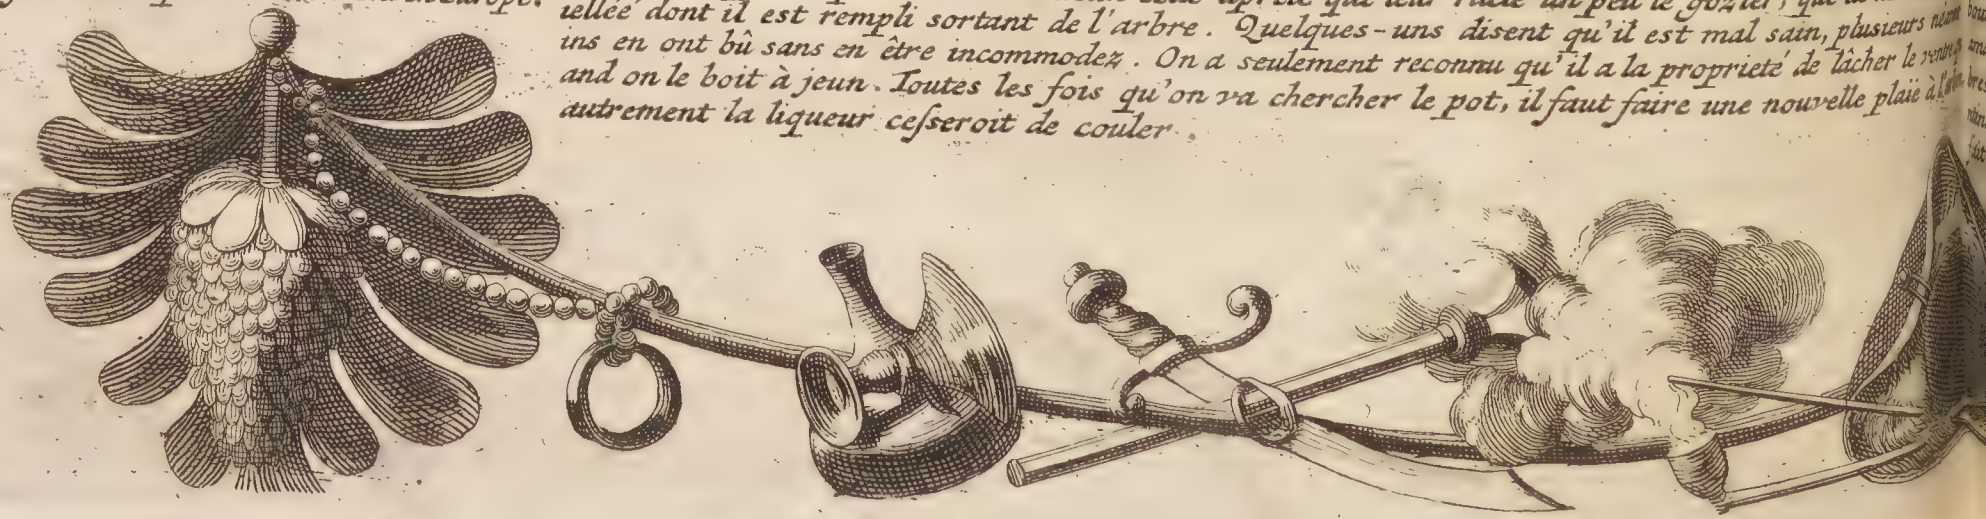 Europe.
iellée dont il est rempli sortant de l'arbre. Quelques-uns disent qu'il est mal sain, plusieurs
ins en ont bû sans en être incommodez. On a seulement reconnu qu'il a la proprieté de lâcher le ventre
and on le boit à jeun. Toutes les fois qu'on va chercher le pot, il faut faire une nouvelle plaïe à
autrement la liqueur cesseroit de couler.